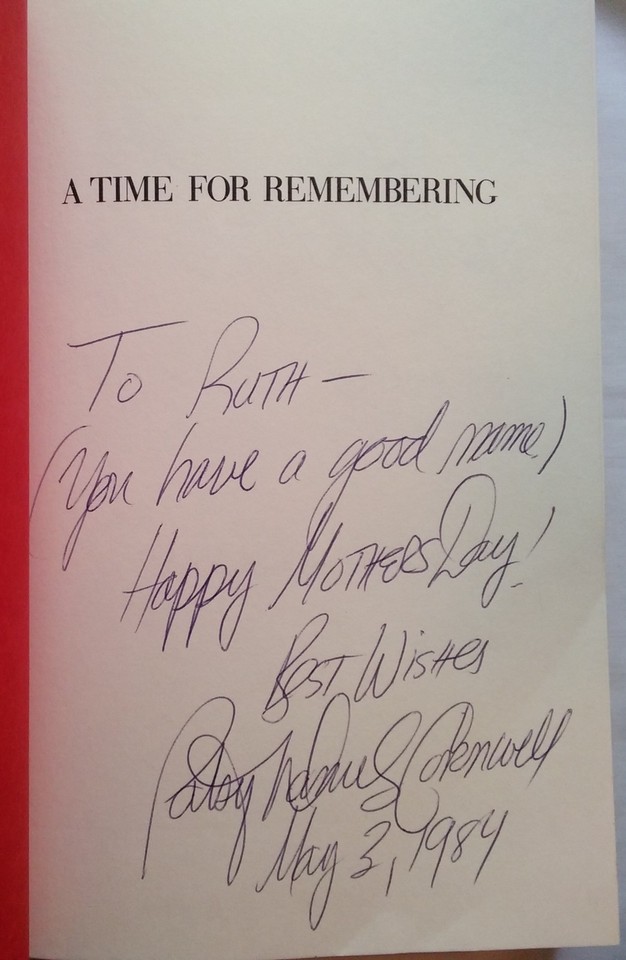 A TIME FOR REMEMBERING
To RUTH —
(You have a good name)
Happy MOTHERS Day!
BEST WISHES
Patsy Daniels Cornwell
May 3, 1984